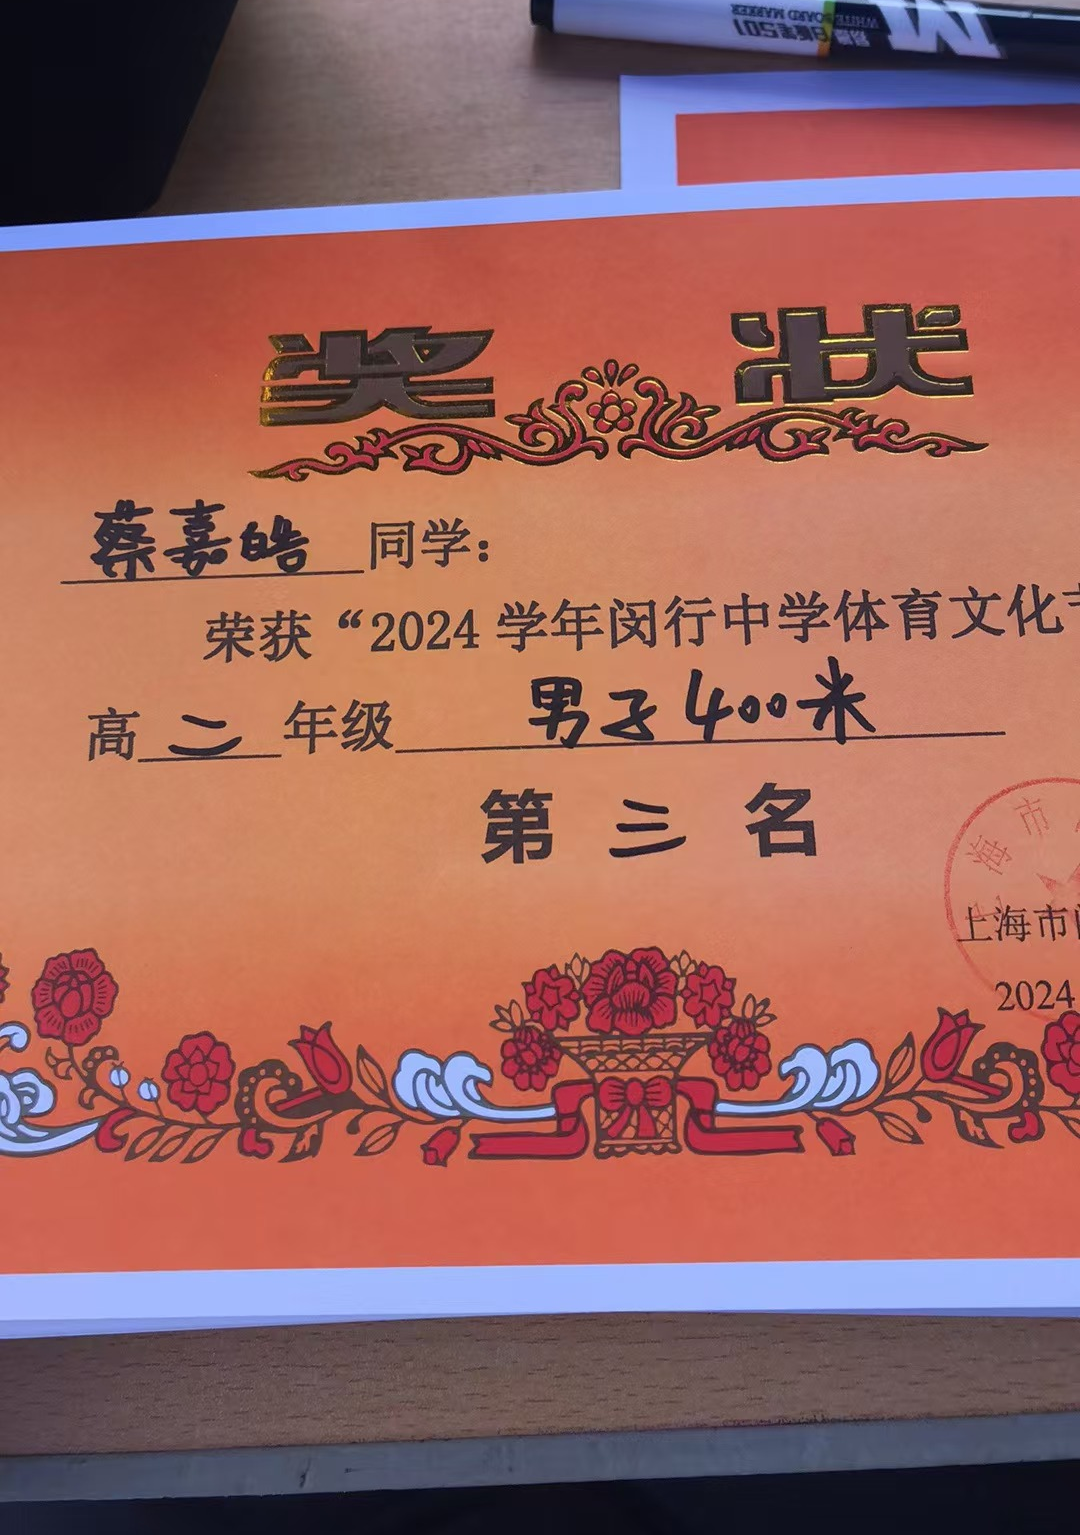 WHITE BOARD MARKER
奖状
蔡嘉皓同学：
荣获“2024学年闵行中学体育文化
高二年级男子400米
第三名
海市
上海市
2024